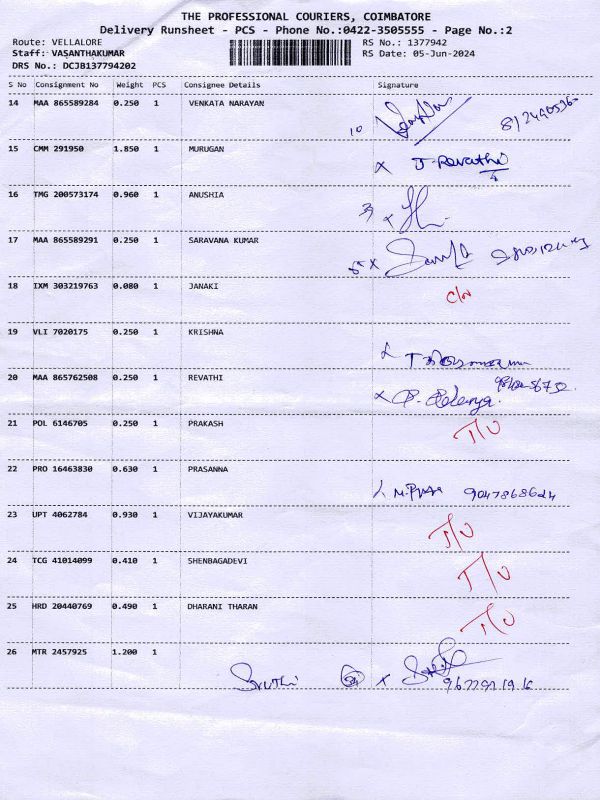 THE PROFESSIONAL COURIERS, COIMBATORE
Delivery Runsheet - PCS - Phone No.:0422-3505555 - Page No.:2
Route: VELLALORE RS No.: 1377942
Staff: VASANTHAKUMAR RS Date: 05-Jun-2024
DRS No.: DCJB137794202
S No Consignment No Weight PCS Consignee Details Signature
14 MAA 865589284 0.250 1 VENKATA NARAYAN
10
15 CMM 291950 1.850 1 MURUGAN
x J. Revathi
4
16 TMG 200573174 0.960 1 ANUSHIA
x
17 MAA 865589291 0.250 1 SARAVANA KUMAR
x
18 IXM 303219763 0.080 1 JANAKI
C/N
19 VLI 7020175 0.250 1 KRISHNA
20 MAA 865762508 0.250 1 REVATHI
x
21 POL 6146705 0.250 1 PRAKASH
T/U
22 PRO 16463830 0.630 1 PRASANNA
9047868624
23 UPT 4062784 0.930 1 VIJAYAKUMAR
T/U
24 TCG 41014099 0.410 1 SHENBAGADEVI
T/U
25 HRD 20440769 0.490 1 DHARANI THARAN
T/U
26 MTR 2457925 1.200 1
Sruthi x